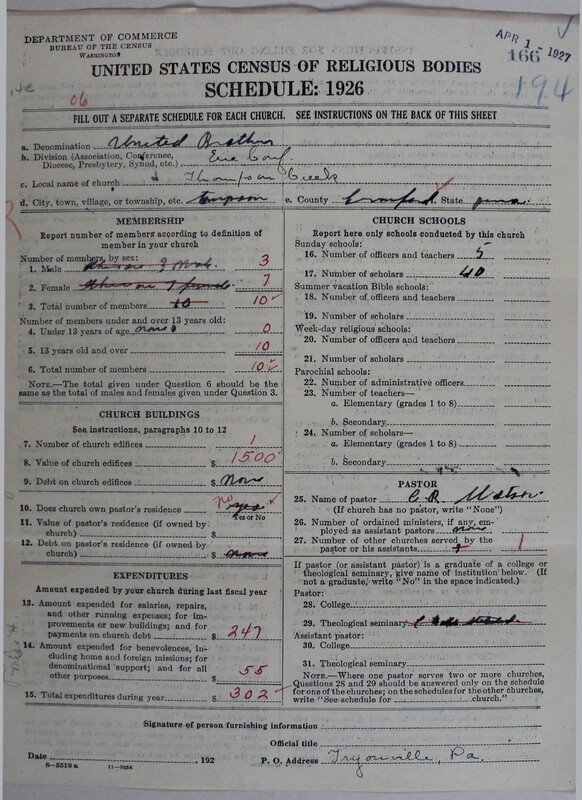 DEPARTMENT OF COMMERCE
BUREAU OF THE CENSUS
WASHINGTON
APR 1 - 1927
166
194
UNITED STATES CENSUS OF RELIGIOUS BODIES
SCHEDULE: 1926
06
FILL OUT A SEPARATE SCHEDULE FOR EACH CHURCH. SEE INSTRUCTIONS ON THE BACK OF THIS SHEET
a. Denomination United Brethren
b. Division (Association, Conference, Diocese, Presbytery, Synod, etc.) Erie Conf.
c. Local name of church Thompson Creek
d. City, town, village, or township, etc. e. County Crawford State penna
MEMBERSHIP
Report number of members according to definition of member in your church
Number of members, by sex:
1. Male 3
2. Female 7
3. Total number of members 10 10
Number of members under and over 13 years old:
4. Under 13 years of age none 0
5. 13 years old and over 10
6. Total number of members 10
NOTE.—The total given under Question 6 should be the same as the total of males and females given under Question 3.
CHURCH BUILDINGS
See instructions, paragraphs 10 to 12
7. Number of church edifices 1
8. Value of church edifices $ 1500
9. Debt on church edifices $ None
10. Does church own pastor's residence? No yes
Yes or No
11. Value of pastor's residence (if owned by church) $
12. Debt on pastor's residence (if owned by church) $ none
EXPENDITURES
Amount expended by your church during last fiscal year
13. Amount expended for salaries, repairs, and other running expenses; for improvements or new buildings; and for payments on church debt $ 247
14. Amount expended for benevolences, including home and foreign missions; for denominational support; and for all other purposes $ 55
15. Total expenditures during year $ 302
CHURCH SCHOOLS
Report here only schools conducted by this church
Sunday schools:
16. Number of officers and teachers 5
17. Number of scholars 40
Summer vacation Bible schools:
18. Number of officers and teachers
19. Number of scholars
Week-day religious schools:
20. Number of officers and teachers
21. Number of scholars
Parochial schools:
22. Number of administrative officers
23. Number of teachers—
a. Elementary (grades 1 to 8)
b. Secondary
24. Number of scholars—
a. Elementary (grades 1 to 8)
b. Secondary
PASTOR
25. Name of pastor C. R. Watson
(If church has no pastor, write "None")
26. Number of ordained ministers, if any, employed as assistant pastors none
27. Number of other churches served by the pastor or his assistants 1
If pastor (or assistant pastor) is a graduate of a college or theological seminary, give name of institution below. (If not a graduate, write "No" in the space indicated.)
Pastor:
28. College
29. Theological seminary
Assistant pastor:
30. College
31. Theological seminary
NOTE.—Where one pastor serves two or more churches, Questions 28 and 29 should be answered only on the schedule for one of the churches; on the schedules for the other churches, write "See schedule for church."
Signature of person furnishing information
Official title
Date , 192 P. O. Address Tryonville, Pa.
8—5519 a 11—9054